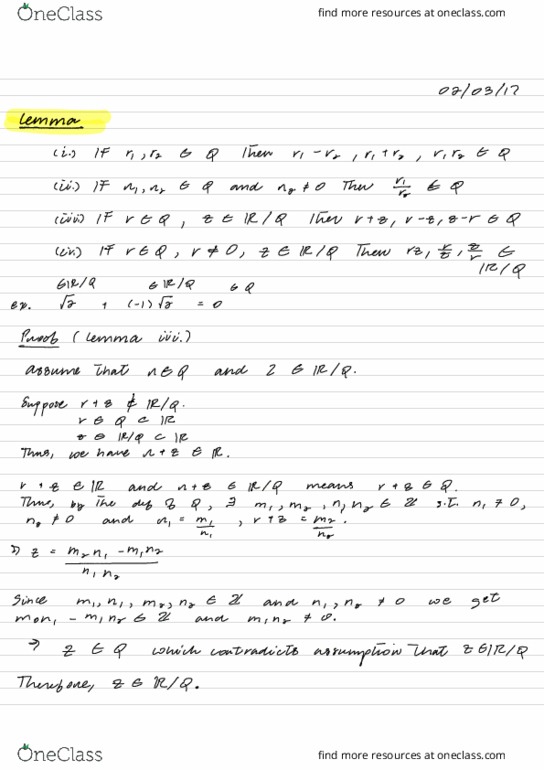 OneClass find more resources at oneclass.com
02/03/17
Lemma
(i.) If r₁, r₂ ∈ Q Then r₁ - r₂, r₁ + r₂, r₁r₂ ∈ Q
(ii.) If r₁, r₂ ∈ Q and r₂ ≠ 0 Then r₁/r₂ ∈ Q
(iii) If r ∈ Q, z ∈ IR/Q Then r+z, r-z, z-r ∈ Q
(iv.) If r ∈ Q, r ≠ 0, z ∈ IR/Q Then rz, r/z, z/r ∈
IR/Q
∈IR/Q ∈ IR/Q ∈ Q
ex. √2 + (-1)√2 = 0
Proof (Lemma iii.)
assume that r ∈ Q and z ∈ IR/Q.
Suppose r + z ∉ IR/Q.
r ∈ Q ⊂ IR
z ∈ IR/Q ⊂ IR
Thus, we have r + z ∈ IR.
r + z ∈ IR and r + z ∈ IR/Q means r + z ∈ Q.
Thus, by the def of Q, ∃ m₁, m₂, n₁, n₂ ∈ Z s.t. n₁ ≠ 0,
n₂ ≠ 0 and r₁ = m₁/n₁, r + z = m₂/n₂.
⇒ z = (m₂n₁ - m₁n₂)/(n₁n₂)
Since m₁, n₁, m₂, n₂ ∈ Z and n₁, n₂ ≠ 0 we get
m₂n₁ - m₁n₂ ∈ Z and m₁n₂ ≠ 0.
⇒ z ∈ Q which contradicts assumption that z ∈ IR/Q
Therefore, z ∈ IR/Q.
OneClass find more resources at oneclass.com